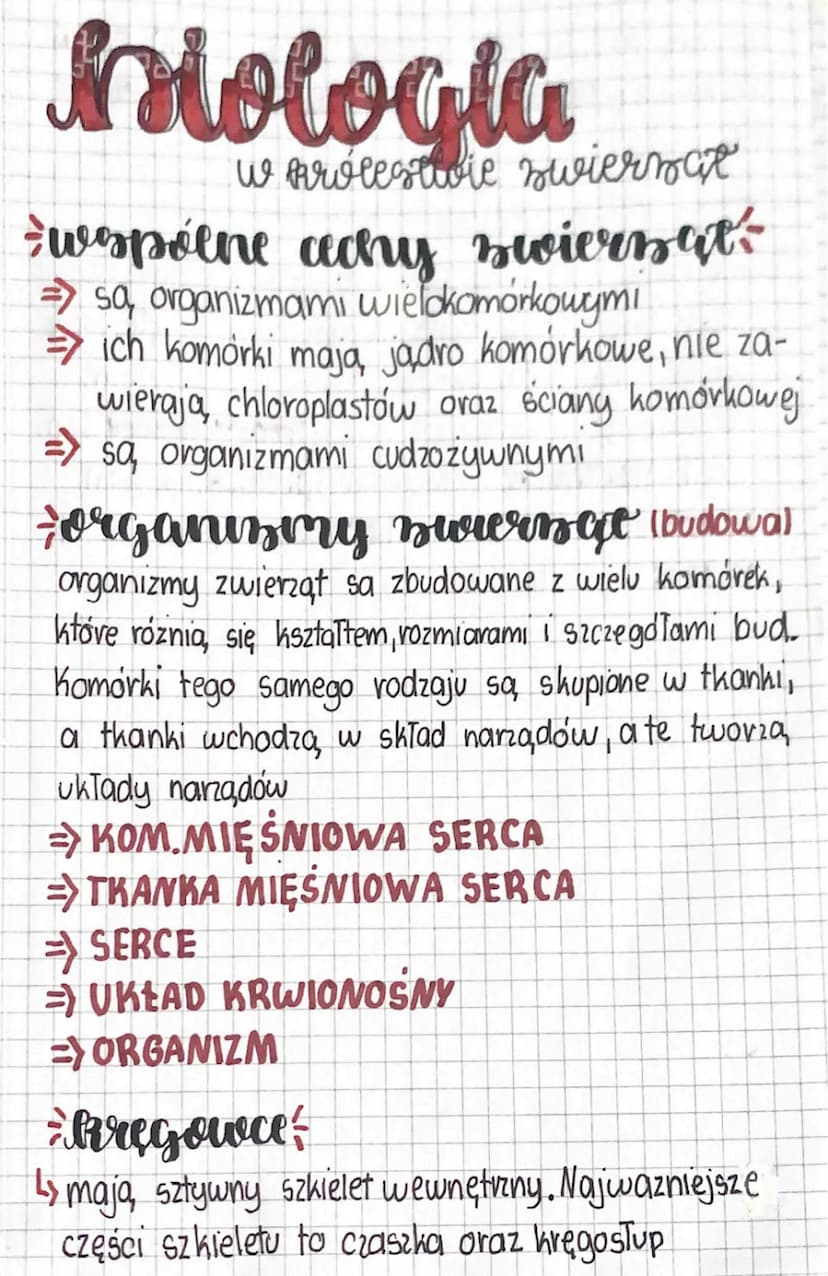 biologia
w królestwie zwierząt
wspólne cechy zwierząt
=> są organizmami wielokomórkowymi
=> ich komórki mają jądro komórkowe, nie za-
wierają chloroplastów oraz ściany komórkowej
=> są organizmami cudzożywnymi
organizmy zwierząt (budowa)
organizmy zwierząt sa zbudowane z wielu komórek,
które róznią się kształtem, rozmiarami i szczegółami bud.
Komórki tego samego rodzaju są skupione w tkanki,
a tkanki wchodzą w skład narządów, a te tworzą
układy narządów
=> KOM. MIĘŚNIOWA SERCA
=> TKANKA MIĘŚNIOWA SERCA
=> SERCE
=> UKŁAD KRWIONOŚNY
=> ORGANIZM
kręgowce
↳ mają sztywny szkielet wewnętrzny. Najwazniejsze
części szkieletu to czaszka oraz kręgosłup